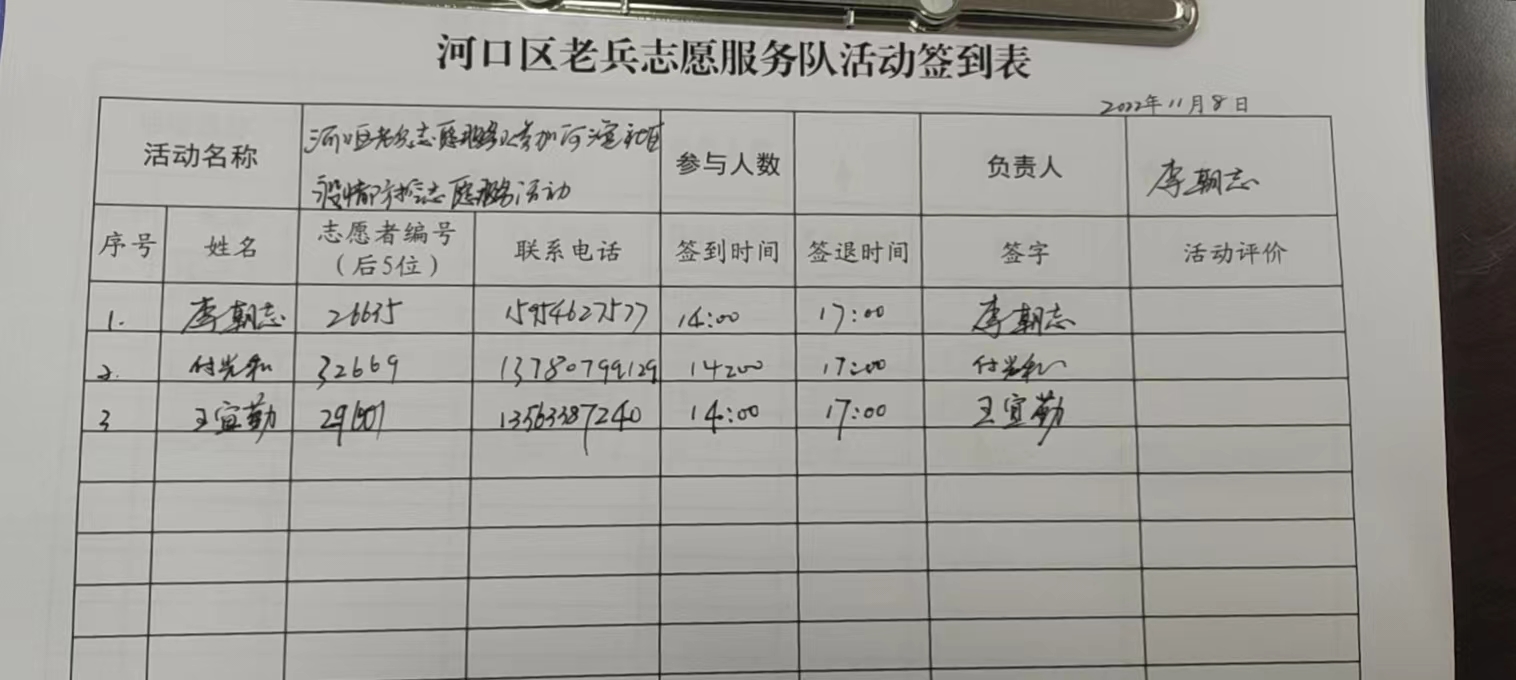 河口区老兵志愿服务队活动签到表
2022年11月8日
活动名称 河口区老兵志愿服务队参加河滨社区 参与人数 负责人 李朝志
疫情防控志愿服务活动
序号 姓名 志愿者编号 联系电话 签到时间 签退时间 签字 活动评价
（后5位）
1. 李朝志 26635 15954627577 14:00 17:00 李朝志
2. 付光和 32669 13780799129 14:00 17:00 付光和
3 王宜勤 13563387240 14:00 17:00 王宜勤